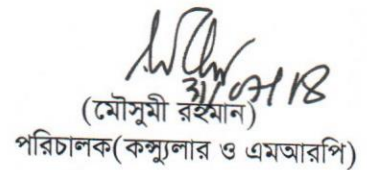 (মৌসুমী রহমান)
পরিচালক(কন্স্যুলার ও এমআরপি)